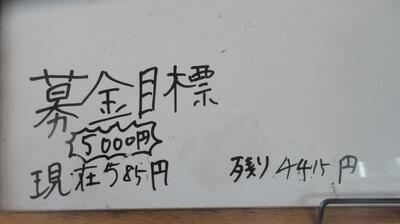 募金目標
5000円
現在585円 残り4415円